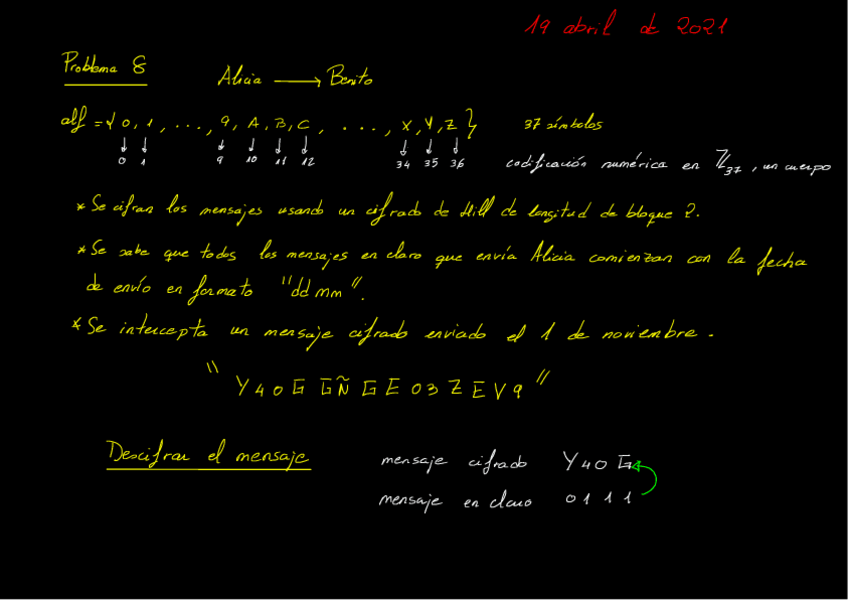 19 abril de 2021
Problema 8 Alicia → Benito
alf = { 0, 1, ..., 9, A, B, C, ..., X, Y, Z } 37 símbolos
↓ ↓ ↓ ↓ ↓ ↓ ↓ ↓ ↓
0 1 9 10 11 12 34 35 36 codificación numérica en ℤ37, un cuerpo
* Se cifran los mensajes usando un cifrado de Hill de longitud de bloque 2.
* Se sabe que todos los mensajes en claro que envía Alicia comienzan con la fecha
de envío en formato "dd mm".
* Se intercepta un mensaje cifrado enviado el 1 de noviembre.
"Y40G GÑGE03ZEV9"
Descifrar el mensaje mensaje cifrado Y40G
mensaje en claro 0111